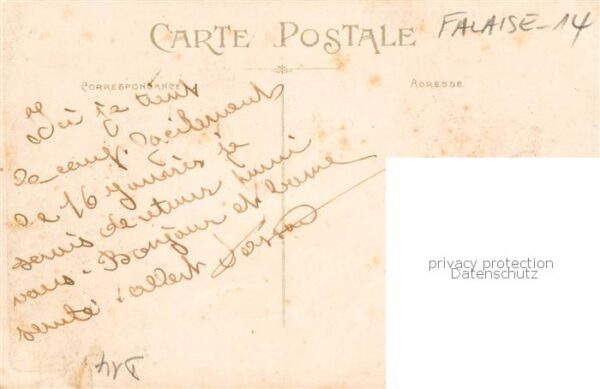 CARTE POSTALE
FALAISE-14
CORRESPONDANCE
ADRESSE
je tient
le coup. facilement
le 16 Janvier je
serais de retour parmi
vous. Bonjour et bonne
santé. albert
privacy protection
Datenschutz